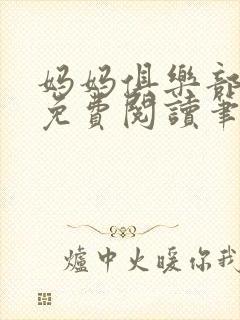 妈妈俱樂部
免費閱讀筆
爐中火暖你我